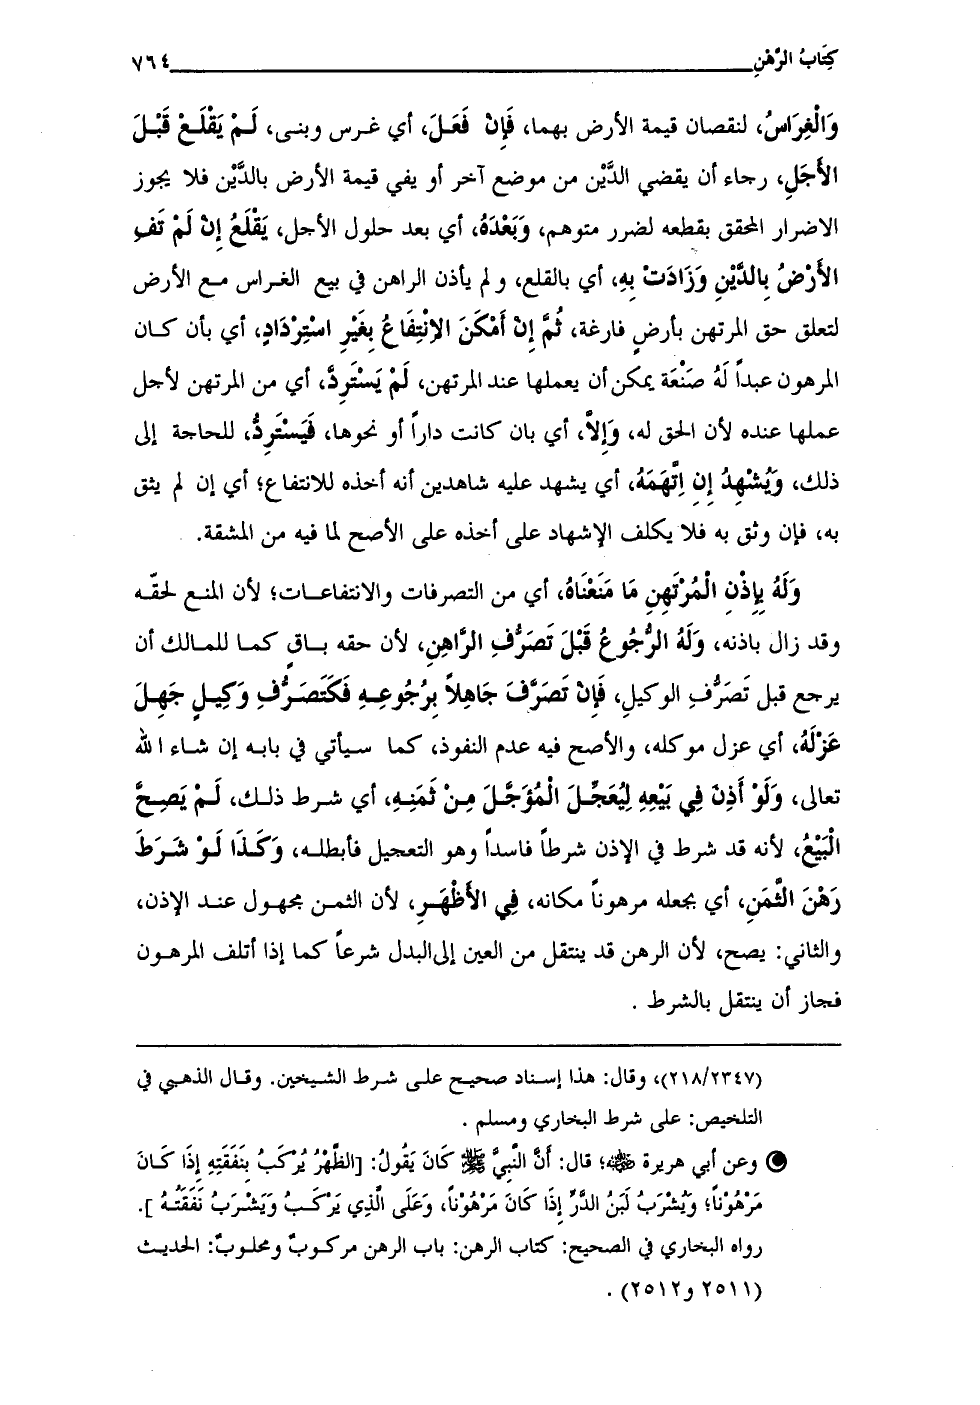 كِتَابُ الرَّهْنِ ٧٦٤
وَالْغِرَاسُ، لنقصان قيمة الأرض بهما، فَإِنْ فَعَلَ، أي غرس وبنى، لَمْ يَقْلَعْ قَبْلَ
الأَجَلِ، رجاء أن يقضي الدَّيْن من موضع آخر أو يفي قيمة الأرض بالدَّيْن فلا يجوز
الاضرار المحقق بقطعه لضرر متوهم، وَبَعْدَهُ، أي بعد حلول الأجل، يَقْلَعُ إِنْ لَمْ تَفِ
الأَرْضُ بِالدَّيْنِ وَزَادَتْ بِهِ، أي بالقلع، و لم يأذن الراهن في بيع الغراس مع الأرض
لتعلق حق المرتهن بأرضٍ فارغة، ثُمَّ إِنْ أَمْكَنَ الاِنْتِفَاعُ بِغَيْرِ اسْتِرْدَادٍ، أي بأن كان
المرهون عبداً لَهُ صَنْعَة يمكن أن يعملها عند المرتهن، لَمْ يَسْتَرِدَّ، أي من المرتهن لأجل
عملها عنده لأن الحق له، وَإِلاَّ، أي بان كانت داراً أو نحوها، فَيَسْتَرِدُّ، للحاجة إلى
ذلك، وَيُشْهِدُ إِنِ اتَّهَمَهُ، أي يشهد عليه شاهدين أنه أخذه للانتفاع؛ أي إن لم يثق
به، فإن وثق به فلا يكلف الإشهاد على أخذه على الأصح لما فيه من المشقة.
وَلَهُ بِإِذْنِ الْمُرْتَهِنِ مَا مَنَعْنَاهُ، أي من التصرفات والانتفاعات؛ لأن المنع لحقّه
وقد زال باذنه، وَلَهُ الرُّجُوعُ قَبْلَ تَصَرُّفِ الرَّاهِنِ، لأن حقه باقٍ كما للمالك أن
يرجع قبل تَصَرُّفِ الوكيلِ، فَإِنْ تَصَرَّفَ جَاهِلاً بِرُجُوعِهِ فَكَتَصَرُّفِ وَكِيلٍ جَهِلَ
عَزْلَهُ، أي عزل موكله، والأصح فيه عدم النفوذ، كما سيأتي في بابه إن شاء الله
تعالى، وَلَوْ أَذِنَ فِي بَيْعِهِ لِيُعَجِّلَ الْمُؤَجَّلَ مِنْ ثَمَنِهِ، أي شرط ذلك، لَمْ يَصِحَّ
الْبَيْعُ، لأنه قد شرط في الإذن شرطاً فاسداً وهو التعجيل فأبطله، وَكَذَا لَوْ شَرَطَ
رَهْنَ الثَّمَنِ، أي بجعله مرهوناً مكانه، فِي الأَظْهَرِ، لأن الثمن مجهول عند الإذن،
والثاني: يصح، لأن الرهن قد ينتقل من العين إلى البدل شرعاً كما إذا أتلف المرهون
فجاز أن ينتقل بالشرط .
(٢١٨/٢٣٤٧)، وقال: هذا إسناد صحيح على شرط الشيخين. وقال الذهبي في
التلخيص: على شرط البخاري ومسلم .
وعن أبي هريرة ﷺ؛ قال: أَنَّ النَّبِيَّ ﷺ كَانَ يَقُولُ: [الظَّهْرُ يُرْكَبُ بِنَفَقَتِهِ إِذَا كَانَ
مَرْهُوْناً؛ وَيُشْرَبُ لَبَنُ الدَّرِّ إِذَا كَانَ مَرْهُوْناً، وَعَلَى الَّذِي يَرْكَبُ وَيَشْرَبُ نَفَقَتُهُ ].
رواه البخاري في الصحيح: كتاب الرهن: باب الرهن مركوبٌ ومحلوبٌ: الحديث
(٢٥١١ و٢٥١٢) .